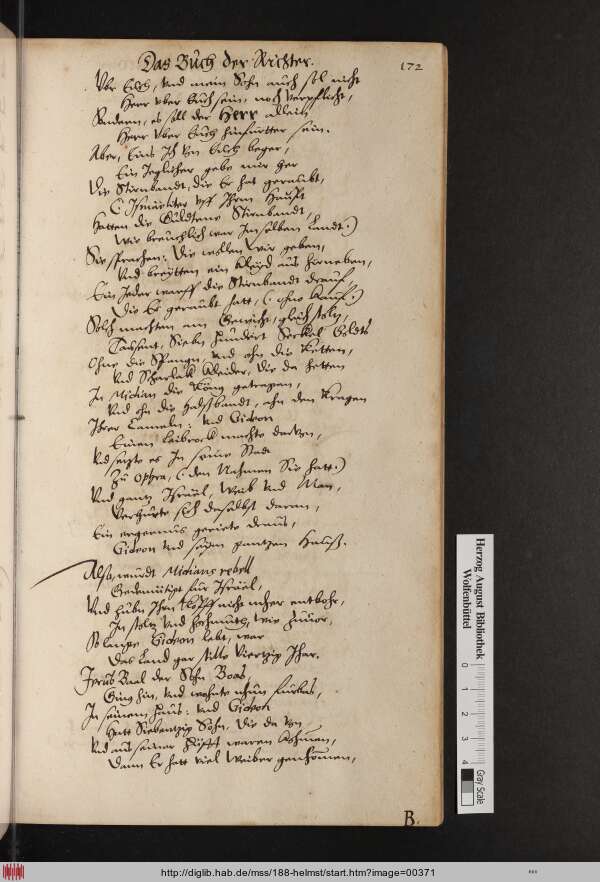 Das Buch der Richter. 172
Vbr Euch, vnd mein Sohn auch sol nicht
Herr vber Euch sein, noch verpflicht,
Sondern, es soll der Herr allein,
Herr vber Euch hinfürtter sein.
Aber, Eins Ich von Euch beger,
Ein Jeglicher gebe mir her
Die Stirnbandt, die Er hat geraubt,
(Ismaeliter vff Ihrm Haupt
Hatten die Güldtene Stirnbandt,
Wie breuchlich war Im selben Landt.)
Sie sprachen: Die wollen wir geben,
Vnd breytten ein Kleyd aus hirneben,
Ein Jeder warff die Stirnbandt drauf,
Die Er geraubt hatt, (ohne Kauf.)
Solch machten am Gewicht, gleich
Tausent, Sieben hundert Seckel Goldts
Ohne die Spangen, vnd ohn die Ketten,
Vnd Scharlack Kleider, Die da hetten
In Midian die König getragen,
Vnd ohn die Halsbandt, ohn den Kragen
Ihrer Cameln: vnd Gideon
Einen Leibrock machte davon,
Vnd setzte es In seine Stadt
Zu Ophra, (den Nahmen Sie hatt.)
Vnd gantz Israël, Weib vnd Man,
Verhurte sich daselbst daran,
Ein ergernus geriete draus,
Gideon vnd seym gantzen Hauß.
Also, wurdt Midians
Gedemütiget für Israël,
Vnd huben Ihrn Kopff nicht meher entbohr,
In stoltz vnd hochmuth, wie zuuor,
So lange Gideon lebt, war
Das Land gar stille Viertzig Jhar.
Jerub Baal der Sohn Joas,
Ging hin, vnd wohnte
In seinem Haus: vnd Gideon
Hatt Siebentzig Söhn, Die da von
Vnd aus seiner Hüfft waren kohmen,
Dann Er hatt viel Weiber genhommen,
B.
Herzog August Bibliothek
Wolfenbüttel
0 1 2 3 4
Gray Scale
http://diglib.hab.de/mss/188-helmst/start.htm?image=00371